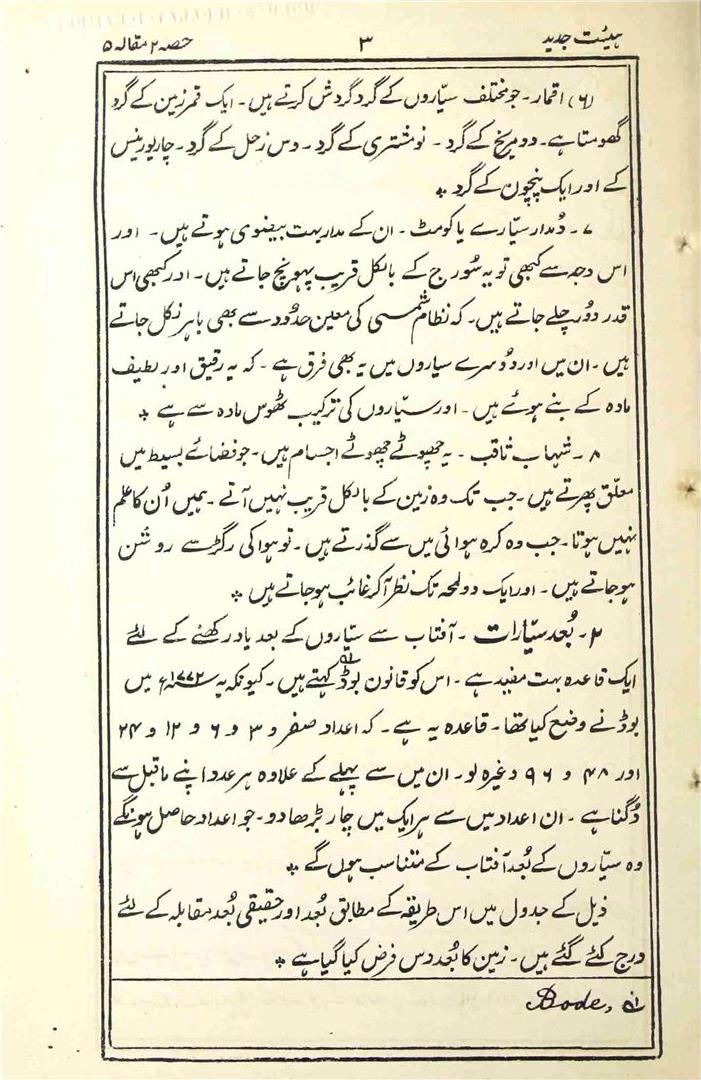 ہیئت جدید ۳ حصہ ۲ مقالہ ۵
(۶) اقمار۔ جو مختلف سیّاروں کے گرد گردش کرتے ہیں۔ ایک قمر زمین کے گرد
گھومتا ہے۔ دو مریخ کے گرد ۔ نو مشتری کے گرد ۔ دس زحل کے گرد ۔ چار یورینس
کے اور ایک نپچون کے گرد *
۷ ۔ دُمدار سیّارے یا کومٹ ۔ ان کے مدار بہت بیضوی ہوتے ہیں ۔ اور
اس وجہ سے کبھی تو یہ سُورج کے بالکل قریب پہونچ جاتے ہیں ۔ اور کبھی اس
قدر دُور چلے جاتے ہیں۔ کہ نظام شمسی کی معین حدُود سے بھی باہر نکل جاتے
ہیں ۔ ان میں اور دُوسرے سیاروں میں یہ بھی فرق ہے ۔ کہ یہ رقیق اور لطیف
مادہ کے بنے ہوئے ہیں ۔ اور سیّاروں کی ترکیب ٹھوس مادہ سے ہے *
۸ ۔ شہاب ثاقب ۔ یہ چھوٹے چھوٹے اجسام ہیں ۔ جو فضائے بسیط میں
معلّق پھرتے ہیں ۔ جب تک وہ زمین کے بالکل قریب نہیں آتے ۔ ہمیں اُن کا علم
نہیں ہوتا ۔ جب وہ کرہ ہوائی میں سے گذرتے ہیں ۔ تو ہوا کی رگڑ سے روشن
ہو جاتے ہیں ۔ اور ایک دو لمحہ تک نظر آ کر غائب ہو جاتے ہیں *
۲ ۔ بُعد سیّارات ۔ آفتاب سے سیّاروں کے بعد یاد رکھنے کے لئے
ایک قاعدہ بہت مفید ہے ۔ اس کو قانون بوڈ۱؎ کہتے ہیں ۔ کیونکہ یہ ۱۷۷۲ء میں
بوڈ نے وضع کیا تھا ۔ قاعدہ یہ ہے ۔ کہ اعداد صفر و ۳ و ۶ و ۱۲ و ۲۴
اور ۴۸ و ۹۶ وغیرہ لو ۔ ان میں سے پہلے کے علاوہ ہر عدد اپنے ماقبل سے
دُگنا ہے ۔ ان اعداد میں سے ہر ایک میں چار بڑھا دو ۔ جو اعداد حاصل ہونگے
وہ سیّاروں کے بُعد آفتاب کے متناسب ہوں گے *
ذیل کے جدول میں اس طریقہ کے مطابق بُعد اور حقیقی بُعد مقابلہ کے لئے
درج کئے گئے ہیں ۔ زمین کا بُعد دس فرض کیا گیا ہے *
۱؎ Bode,